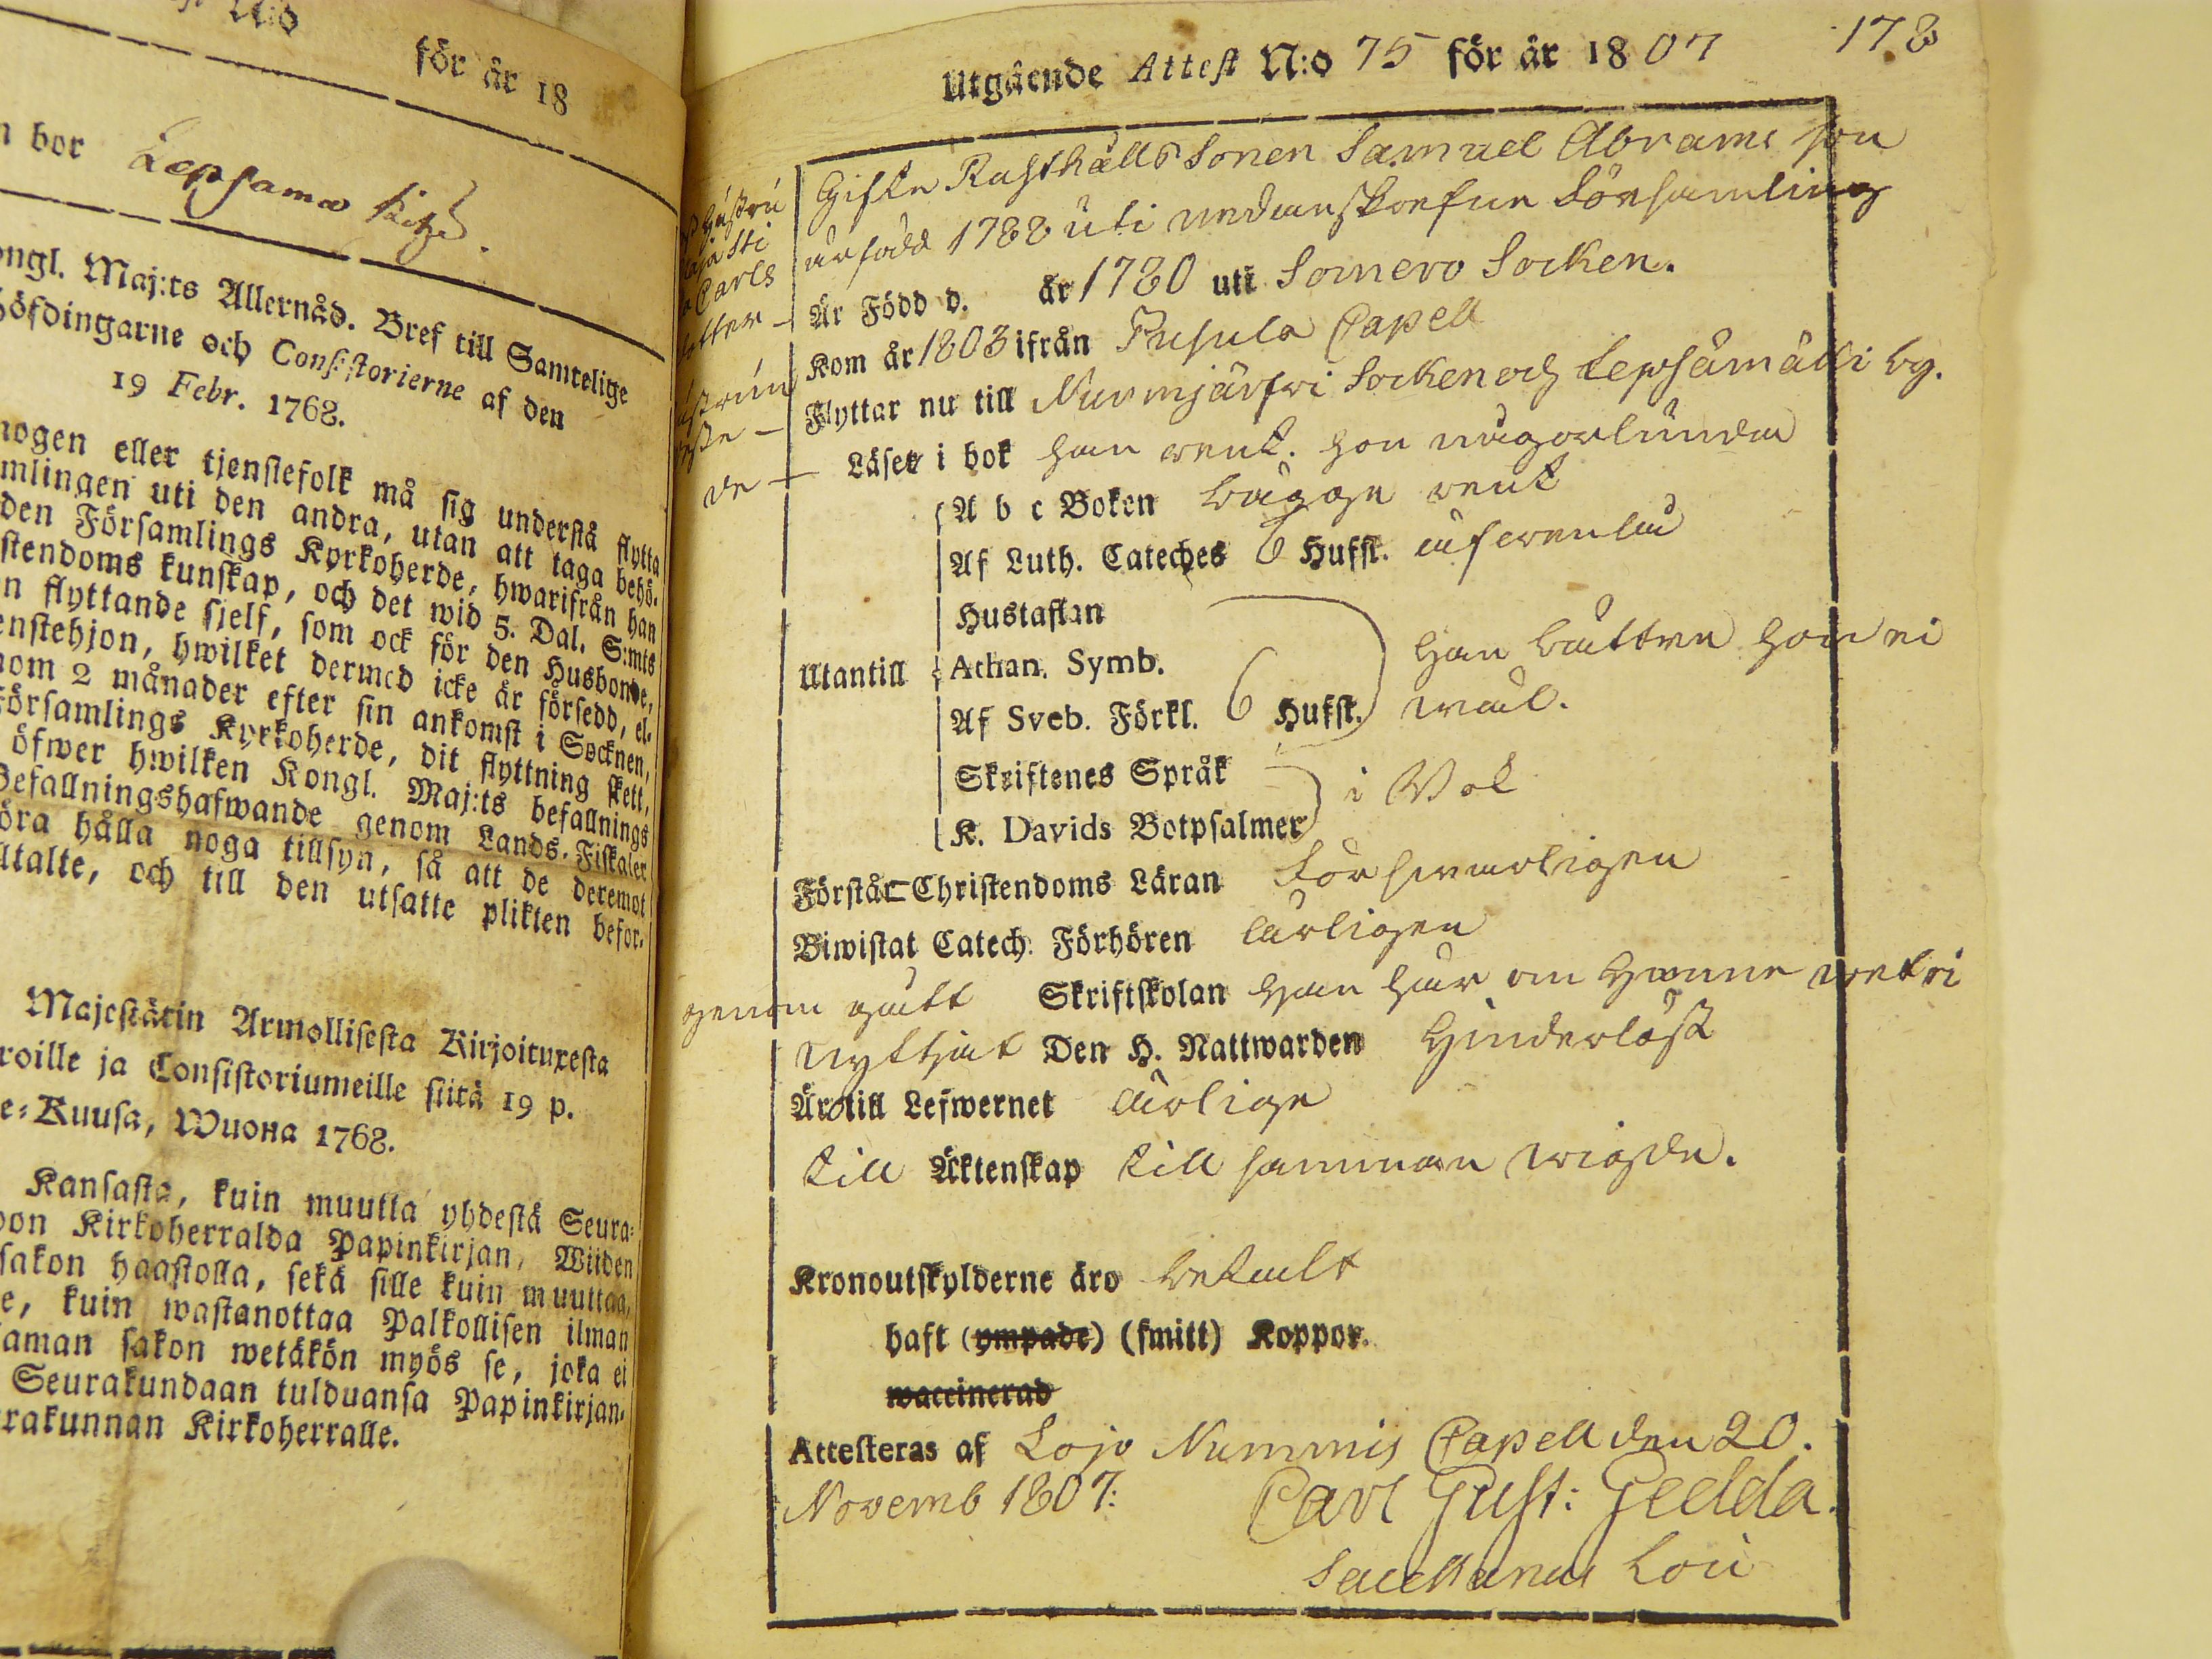 N:o
för år 18
n bor Lepsama
ongl. Maj:ts Allernåd. Bref till Samtelige
höfdingarne och Consistorierne af den
19 Febr. 1768.
mogen eller tjenstefolk må sig understå flytta
mlingen uti den andra, utan att taga behö-
den Församlings Kyrkoherde, hwarifrån han
stendoms kunskap, och det wid 5. Dal. S:mts
n flyttande sjelf, som ock för den Husbonde,
enstehjon, hwilket dermed icke är försedd, el-
nom 2 månader efter sin ankomst i Socknen,
Församlings Kyrkoherde, dit flyttning skett,
öfwer hwilken Kongl. Maj:ts befallnings
Befallningshafwande genom Lands-Fiskaler
öra hålla noga tillsyn, så att de deremot
lltalte, och till den utsatte plikten befor-
Majestätin Armollisesta Kirjoituxesta
roille ja Consistoriumeille siitä 19 p.
e-Kuusa, Wuona 1768.
Kansasta, kuin muutta yhdestä Seura-
oon Kirkoherralda Papinkirjan, Wiiden
sakon haastolla, sekä sille kuin muuttaa,
e, kuin wastanottaa Palkollisen ilman
saman sakon wetäkön myös se, joka ei
Seurakundaan tulduansa Papinkirjan-
rakunnan Kirkoherralle.
178
Utgående Attest N:o 75 för år 1807
Gifte Rusthålls Sonen Samuel Abrams son
hustru
Maja Sti
a Carls
dotter –
är född 1788 uti nedanskrefne Församling
Är Född d. år 1780 uti Somero Socken.
Kom år 1803 ifrån Pusula Capell
Flyttar nu till Nurmjärfwi Socken och Lepsämä by.
de – Läser i bok han rent. hon någorlunda
A b c Boken bägge rent
Af Luth. Cateches 6 Hufst.
Hustaflan
Utantill Athan. Symb. han bättre hon ei
Af Sveb. Förkl. 6 Hufst. wäl.
Skriftenes Språk i Bok
K. Davids Botpsalmer
Förstår Christendoms Läran förswarligen
Biwistat Catech. Förhören årligen
genom gått Skriftskolan han har om henne wet ei
nyttjat Den H. Nattwarden Hinderlöst
Äro till Lefwernet ärlige
till Äktenskap till samman wigde.
Kronoutskylderne äro betalt
haft (ympade) (smitt) Koppor.
waccinerad
Attesteras af Lojo Nummis Capell den 20.
Novemb 1807: Carl Gust: Gedda.
Sacellanus Loci